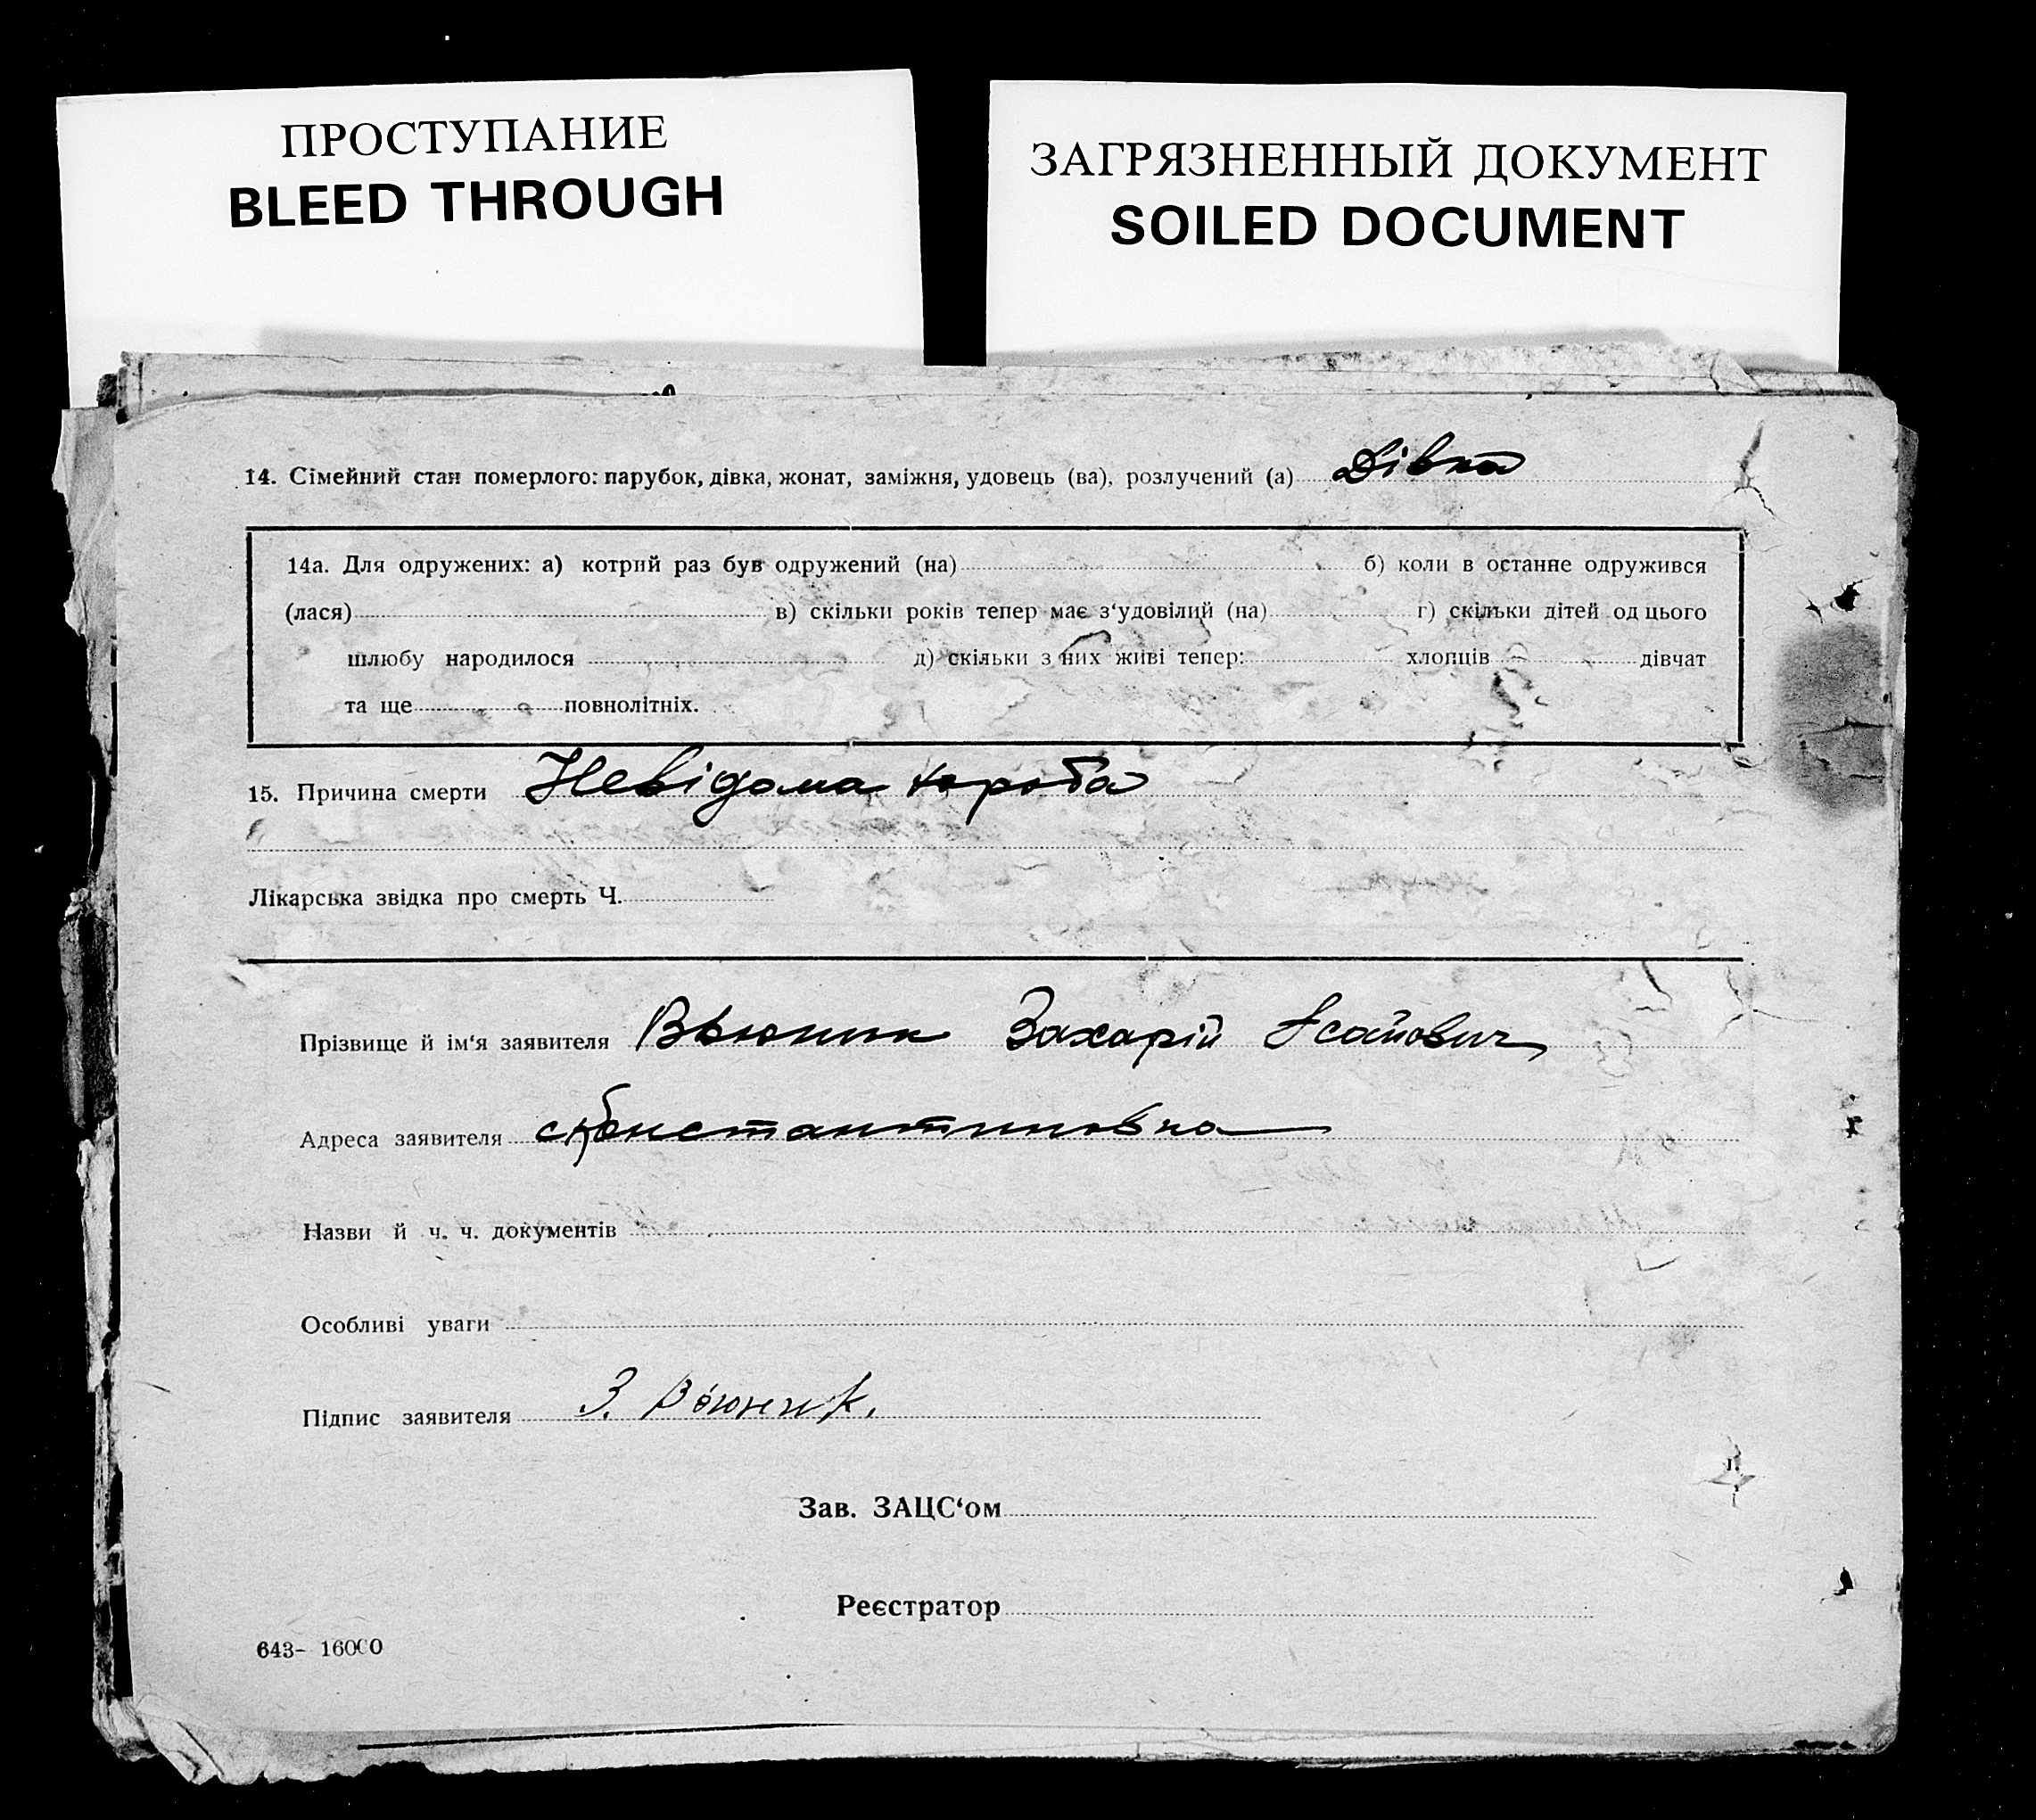 ПРОСТУПАНИЕ
BLEED THROUGH
ЗАГРЯЗНЕННЫЙ ДОКУМЕНТ
SOILED DOCUMENT
14. Сімейний стан померлого: парубок, дівка, жонат, заміжня, удовець (ва), розлучений (а) Дівка
14а. Для одружених: а) котрий раз був одружений (на) б) коли в останнє одружився
(лася) в) скільки років тепер має з‘удовілий (на) г) скільки дітей од цього
шлюбу народилося д) скільки з них живі тепер: хлопців дівчат
та ще повнолітніх.
15. Причина смерти Невідома хороба
Лікарська звідка про смерть Ч.
Прізвище й ім‘я заявителя Вьюник Захарій Ісайович
Адреса заявителя с. Константиновка
Назви й ч. ч. документів
Особливі уваги
Підпис заявителя З. Вьюник.
Зав. ЗАЦС‘ом
Реєстратор
643- 16000